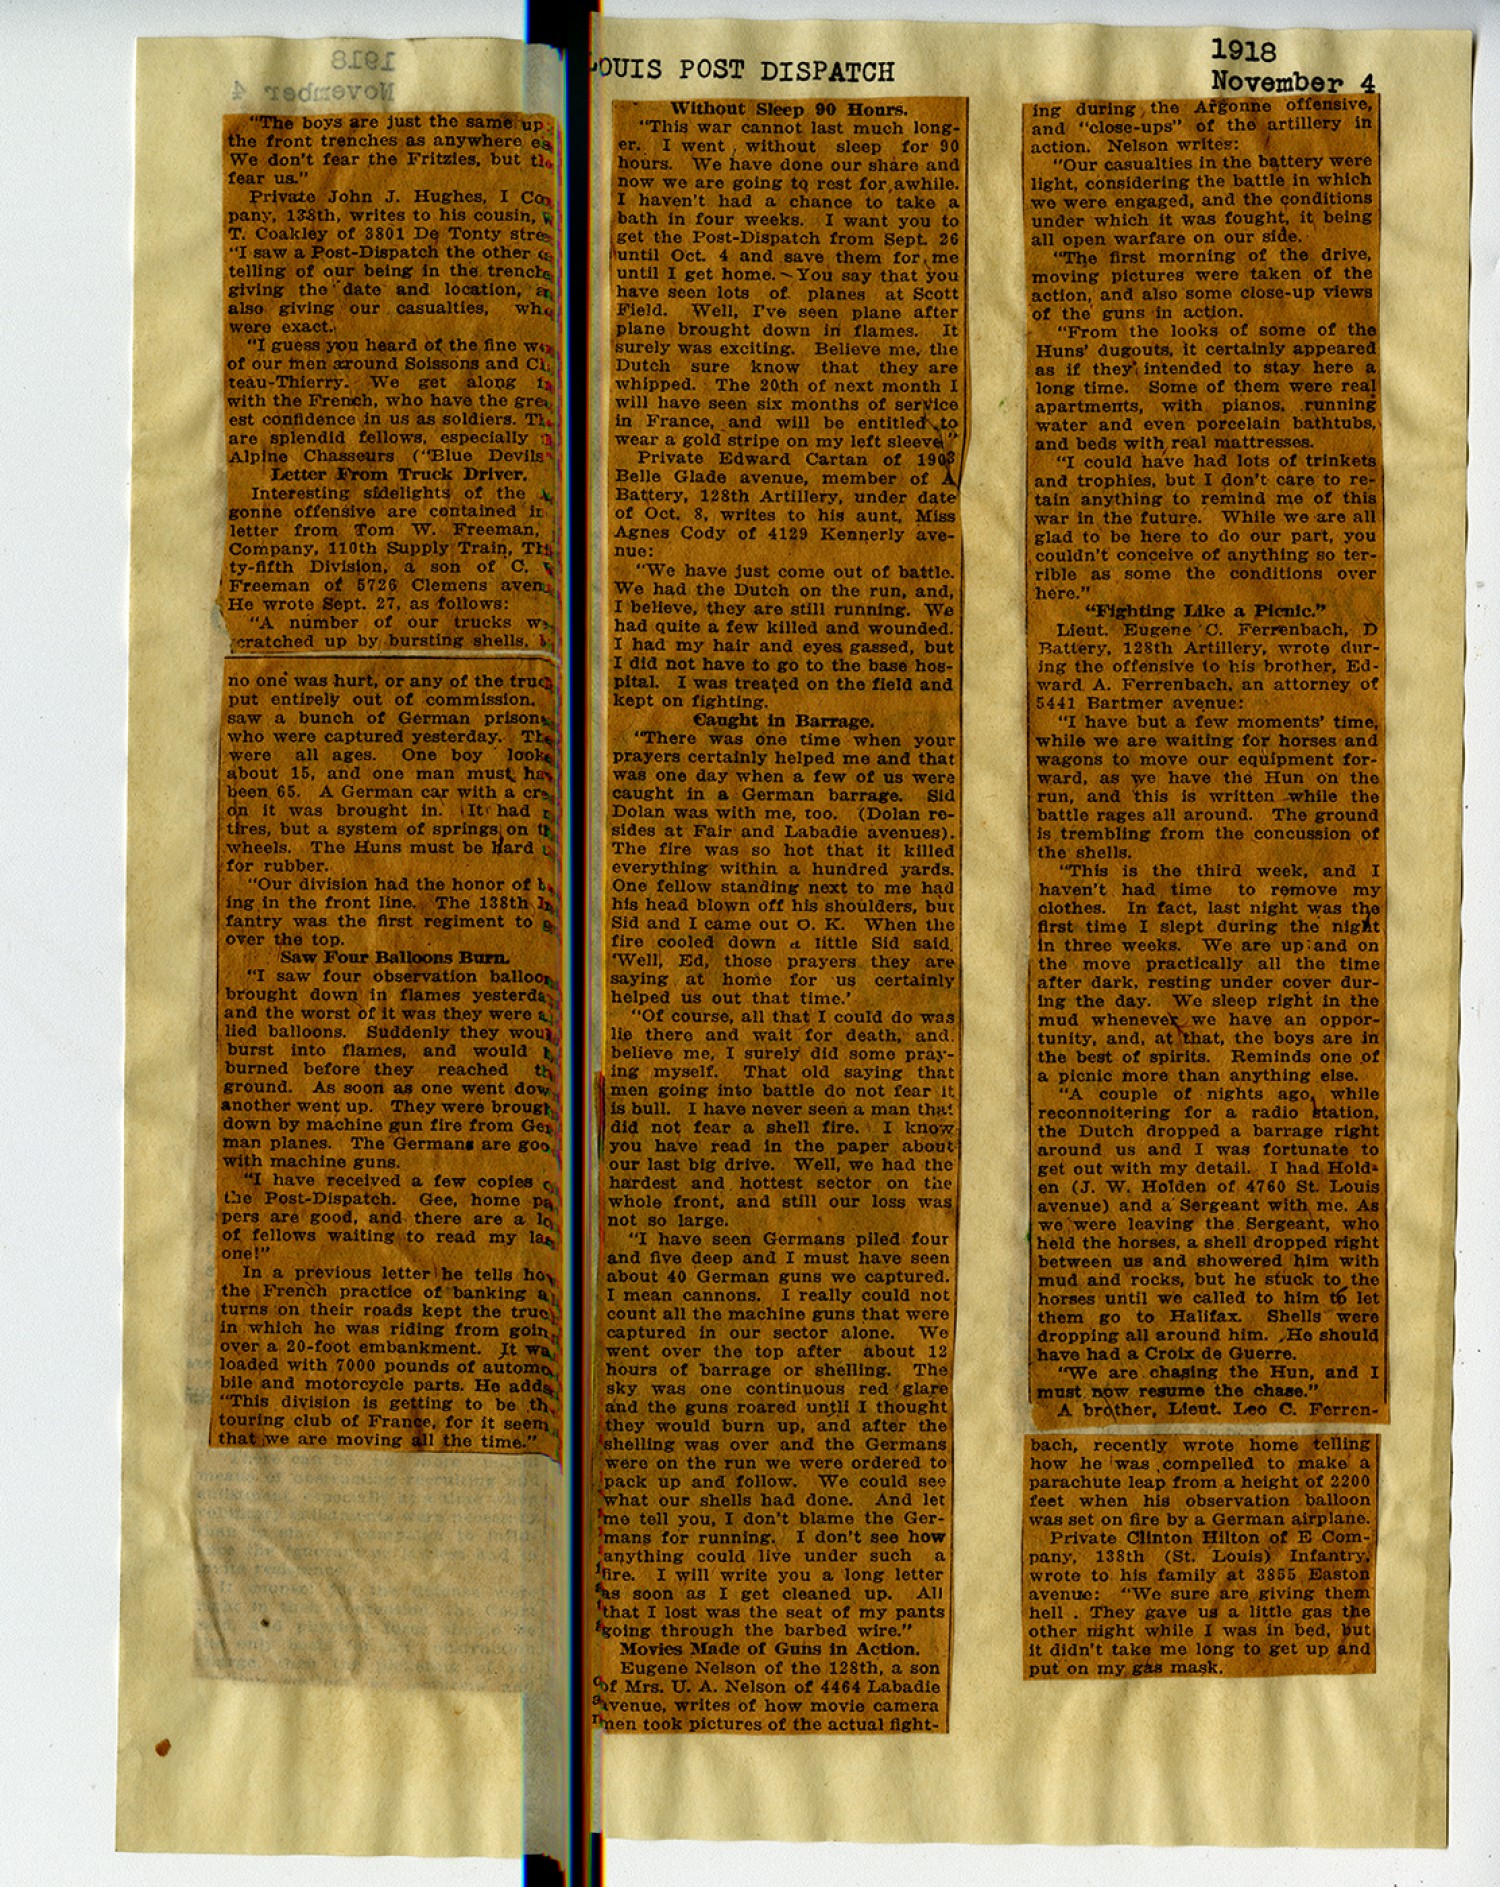 1918
November 4
"The boys are just the same up
the front trenches as anywhere
We don't fear the Fritzies, but
fear us."
Private John J. Hughes, I
pany, 138th, writes to his cousin,
T. Coakley of 3801 De Tonty
"I saw a Post-Dispatch the other
telling of our being in the
giving the date and location,
also giving our casualties,
were exact.
"I guess you heard of the fine
of our men around Soissons and
teau-Thierry. We get along
with the French, who have the
est confidence in us as soldiers.
are splendid fellows, especially
Alpine Chasseurs ("Blue Devils"
Letter From Truck Driver.
Interesting sidelights of the
gonne offensive are contained
letter from Tom W. Freeman,
Company, 110th Supply Train,
ty-fifth Division, a son of C.
Freeman of 5726 Clemens
He wrote Sept. 27, as follows:
"A number of our trucks
cratched up by bursting shells,
no one was hurt, or any of the
put entirely out of commission.
saw a bunch of German
who were captured yesterday.
were all ages. One boy
about 15, and one man must
been 65. A German car with a
on it was brought in. It had
tires, but a system of springs on
wheels. The Huns must be hard
for rubber.
"Our division had the honor of
ing in the front line. The 138th
fantry was the first regiment to
over the top.
Saw Four Balloons Burn.
"I saw four observation
brought down in flames
and the worst of it was they were
lied balloons. Suddenly they
burst into flames, and would
burned before they reached
ground. As soon as one went
another went up. They were
down by machine gun fire from
man planes. The Germans are
with machine guns.
"I have received a few copies
the Post-Dispatch. Gee, home
pers are good, and there are a
of fellows waiting to read my
one!"
In a previous letter he tells
the French practice of banking
turns on their roads kept the
in which he was riding from
over a 20-foot embankment. It
loaded with 7000 pounds of
bile and motorcycle parts. He
"This division is getting to be
touring club of France, for it
that we are moving all the time."
OUIS POST DISPATCH
1918
November 4
Without Sleep 90 Hours.
"This war cannot last much long-
er. I went without sleep for 90
hours. We have done our share and
now we are going to rest for awhile.
I haven't had a chance to take a
bath in four weeks. I want you to
get the Post-Dispatch from Sept. 26
until Oct. 4 and save them for me
until I get home. You say that you
have seen lots of planes at Scott
Field. Well, I've seen plane after
plane brought down in flames. It
surely was exciting. Believe me, the
Dutch sure know that they are
whipped. The 20th of next month I
will have seen six months of service
in France, and will be entitled to
wear a gold stripe on my left sleeve"
Private Edward Cartan of 1903
Belle Glade avenue, member of A
Battery, 128th Artillery, under date
of Oct. 8, writes to his aunt, Miss
Agnes Cody of 4129 Kennerly ave-
nue:
"We have just come out of battle.
We had the Dutch on the run, and,
I believe, they are still running. We
had quite a few killed and wounded.
I had my hair and eyes gassed, but
I did not have to go to the base hos-
pital. I was treated on the field and
kept on fighting.
Caught in Barrage.
"There was one time when your
prayers certainly helped me and that
was one day when a few of us were
caught in a German barrage. Sid
Dolan was with me, too. (Dolan re-
sides at Fair and Labadie avenues).
The fire was so hot that it killed
everything within a hundred yards.
One fellow standing next to me had
his head blown off his shoulders, but
Sid and I came out O. K. When the
fire cooled down a little Sid said,
'Well, Ed, those prayers they are
saying at home for us certainly
helped us out that time.'
"Of course, all that I could do was
lie there and wait for death, and.
believe me, I surely did some pray-
ing myself. That old saying that
men going into battle do not fear it
is bull. I have never seen a man that
did not fear a shell fire. I know
you have read in the paper about
our last big drive. Well, we had the
hardest and hottest sector on the
whole front, and still our loss was
not so large.
"I have seen Germans piled four
and five deep and I must have seen
about 40 German guns we captured.
I mean cannons. I really could not
count all the machine guns that were
captured in our sector alone. We
went over the top after about 12
hours of barrage or shelling. The
sky was one continuous red glare
and the guns roared until I thought
they would burn up, and after the
shelling was over and the Germans
were on the run we were ordered to
pack up and follow. We could see
what our shells had done. And let
me tell you, I don't blame the Ger-
mans for running. I don't see how
anything could live under such a
fire. I will write you a long letter
as soon as I get cleaned up. All
that I lost was the seat of my pants
going through the barbed wire."
Movies Made of Guns in Action.
Eugene Nelson of the 128th, a son
of Mrs. U. A. Nelson of 4464 Labadie
avenue, writes of how movie camera
men took pictures of the actual fight-
ing during the Argonne offensive,
and "close-ups" of the artillery in
action. Nelson writes:
"Our casualties in the battery were
light, considering the battle in which
we were engaged, and the conditions
under which it was fought, it being
all open warfare on our side.
"The first morning of the drive,
moving pictures were taken of the
action, and also some close-up views
of the guns in action.
"From the looks of some of the
Huns' dugouts, it certainly appeared
as if they intended to stay here a
long time. Some of them were real
apartments, with pianos, running
water and even porcelain bathtubs,
and beds with real mattresses.
"I could have had lots of trinkets
and trophies, but I don't care to re-
tain anything to remind me of this
war in the future. While we are all
glad to be here to do our part, you
couldn't conceive of anything so ter-
rible as some the conditions over
here."
"Fighting Like a Picnic."
Lieut. Eugene C. Ferrenbach, D
Battery, 128th Artillery, wrote dur-
ing the offensive to his brother, Ed-
ward A. Ferrenbach, an attorney of
5441 Bartmer avenue:
"I have but a few moments' time,
while we are waiting for horses and
wagons to move our equipment for-
ward, as we have the Hun on the
run, and this is written while the
battle rages all around. The ground
is trembling from the concussion of
the shells.
"This is the third week, and I
haven't had time to remove my
clothes. In fact, last night was the
first time I slept during the night
in three weeks. We are up and on
the move practically all the time
after dark, resting under cover dur-
ing the day. We sleep right in the
mud whenever we have an oppor-
tunity, and, at that, the boys are in
the best of spirits. Reminds one of
a picnic more than anything else.
"A couple of nights ago, while
reconnoitering for a radio station,
the Dutch dropped a barrage right
around us and I was fortunate to
get out with my detail. I had Hold-
en (J. W. Holden of 4760 St. Louis
avenue) and a Sergeant with me. As
we were leaving the Sergeant, who
held the horses, a shell dropped right
between us and showered him with
mud and rocks, but he stuck to the
horses until we called to him to let
them go to Halifax. Shells were
dropping all around him. He should
have had a Croix de Guerre.
"We are chasing the Hun, and I
must now resume the chase."
A brother, Lieut. Leo C. Ferren-
bach, recently wrote home telling
how he was compelled to make a
parachute leap from a height of 2200
feet when his observation balloon
was set on fire by a German airplane.
Private Clinton Hilton of E Com-
pany, 138th (St. Louis) Infantry,
wrote to his family at 3855 Easton
avenue: "We sure are giving them
hell. They gave us a little gas the
other night while I was in bed, but
it didn't take me long to get up and
put on my gas mask.